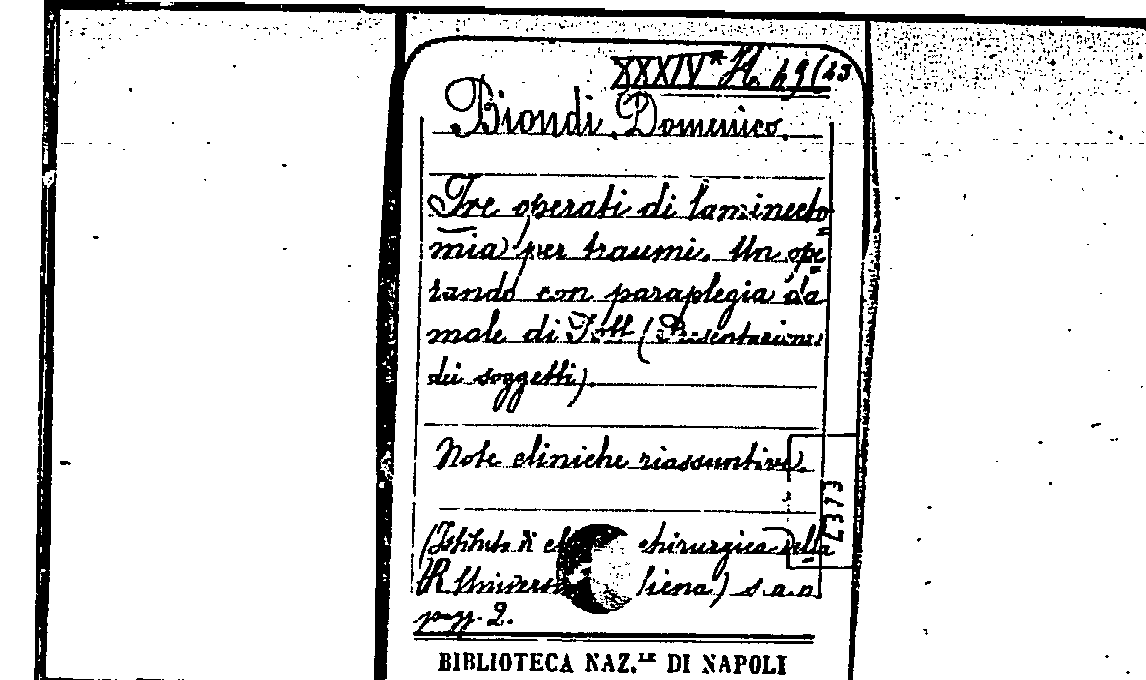 XXXIV* H. 69 (23
Biondi Domenico.
Tre operati di laminecto
mia per traumi. Un ope
rando con paraplegia da
male di Pott (Presentazione
dei soggetti).
Note cliniche riassuntive.
(Istituto di chirurgica della
R. Siena) s. a. n.
pagg. 2.
BIBLIOTECA NAZ.LE DI NAPOLI